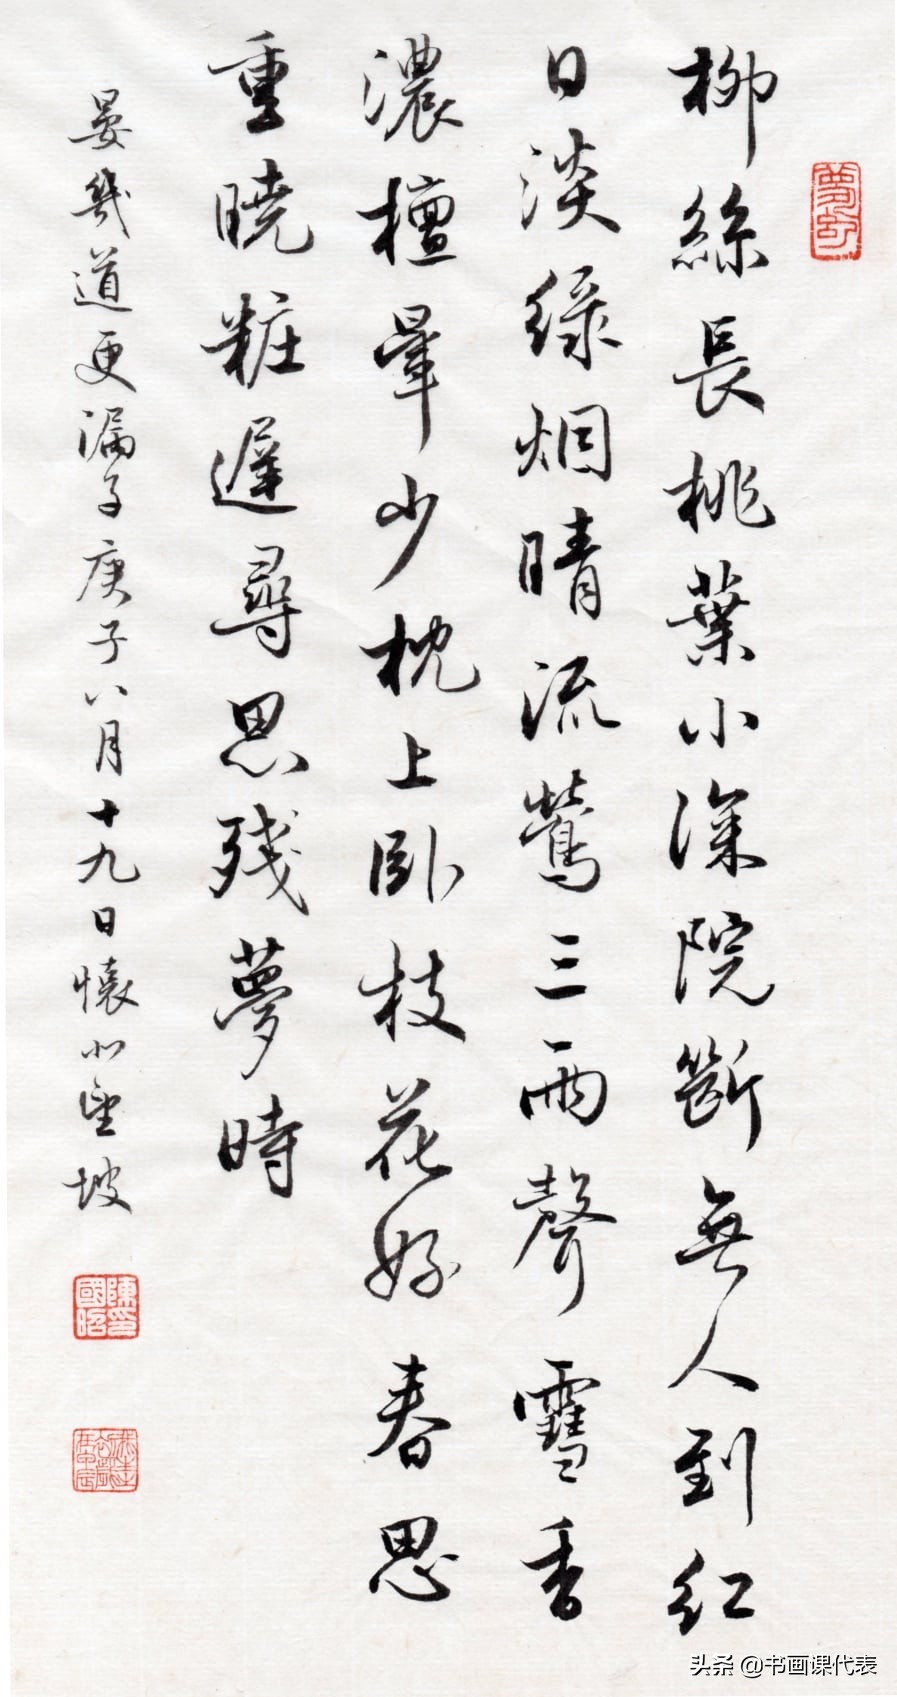 柳絲長桃葉小深院斷無人到紅
日淡綠烟晴流鶯三兩聲雪香
濃檀暈少枕上卧枝花好春思
重曉粧遲尋思残夢時
晏幾道更漏子庚子八月十九日懷北望坡
陳國昭印
头条 @书画课代表